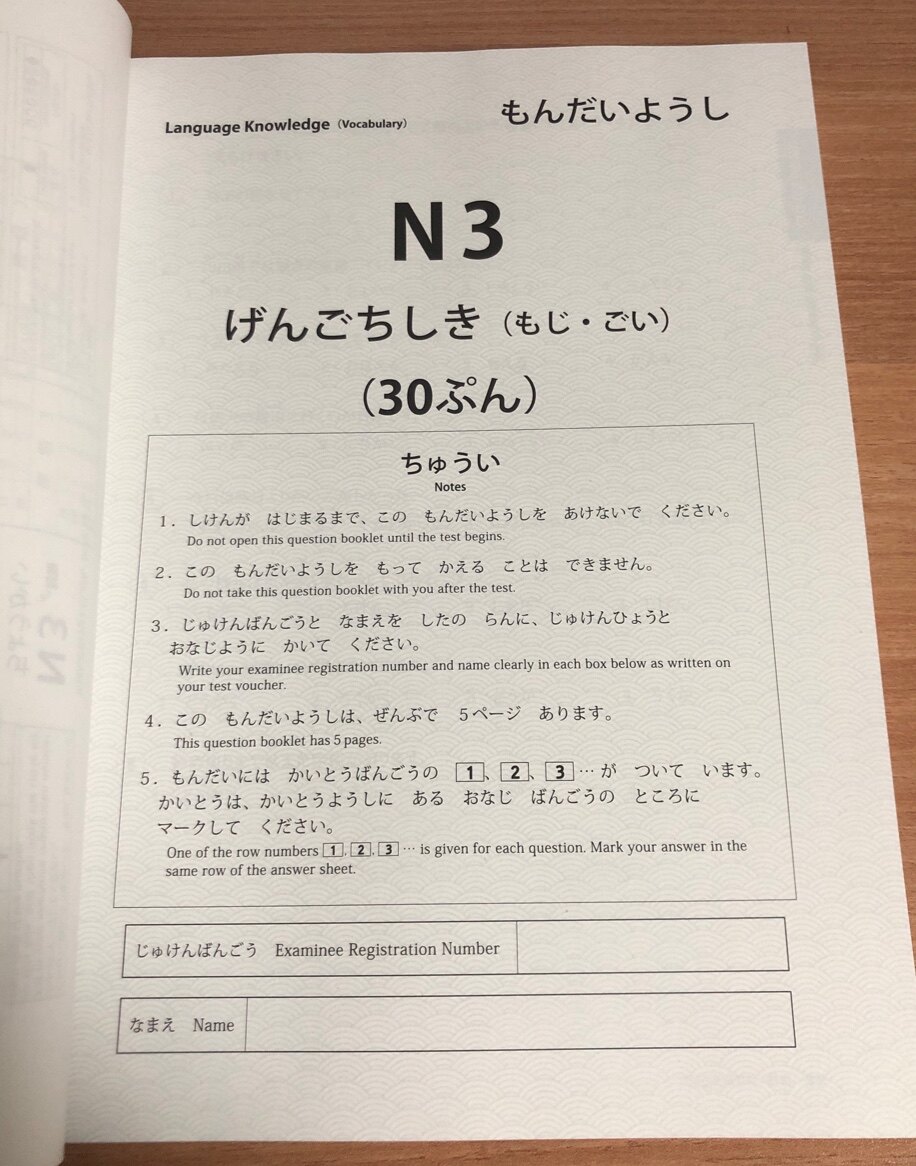 Language Knowledge（Vocabulary）
もんだいようし
N3
げんごちしき（もじ・ごい）
（30ぷん）
ちゅうい
Notes
1．しけんが　はじまるまで、この　もんだいようしを　あけないで　ください。
Do not open this question booklet until the test begins.
2．この　もんだいようしを　もって　かえる　ことは　できません。
Do not take this question booklet with you after the test.
3．じゅけんばんごうと　なまえを　したの　らんに、じゅけんひょうと
おなじように　かいて　ください。
Write your examinee registration number and name clearly in each box below as written on
your test voucher.
4．この　もんだいようしは、ぜんぶで　5ページ　あります。
This question booklet has 5 pages.
5．もんだいには　かいとうばんごうの　1、2、3…が　ついて　います。
かいとうは、かいとうようしに　ある　おなじ　ばんごうの　ところに
マークして　ください。
One of the row numbers 1, 2, 3 … is given for each question. Mark your answer in the
same row of the answer sheet.
じゅけんばんごう　Examinee Registration Number
なまえ　Name